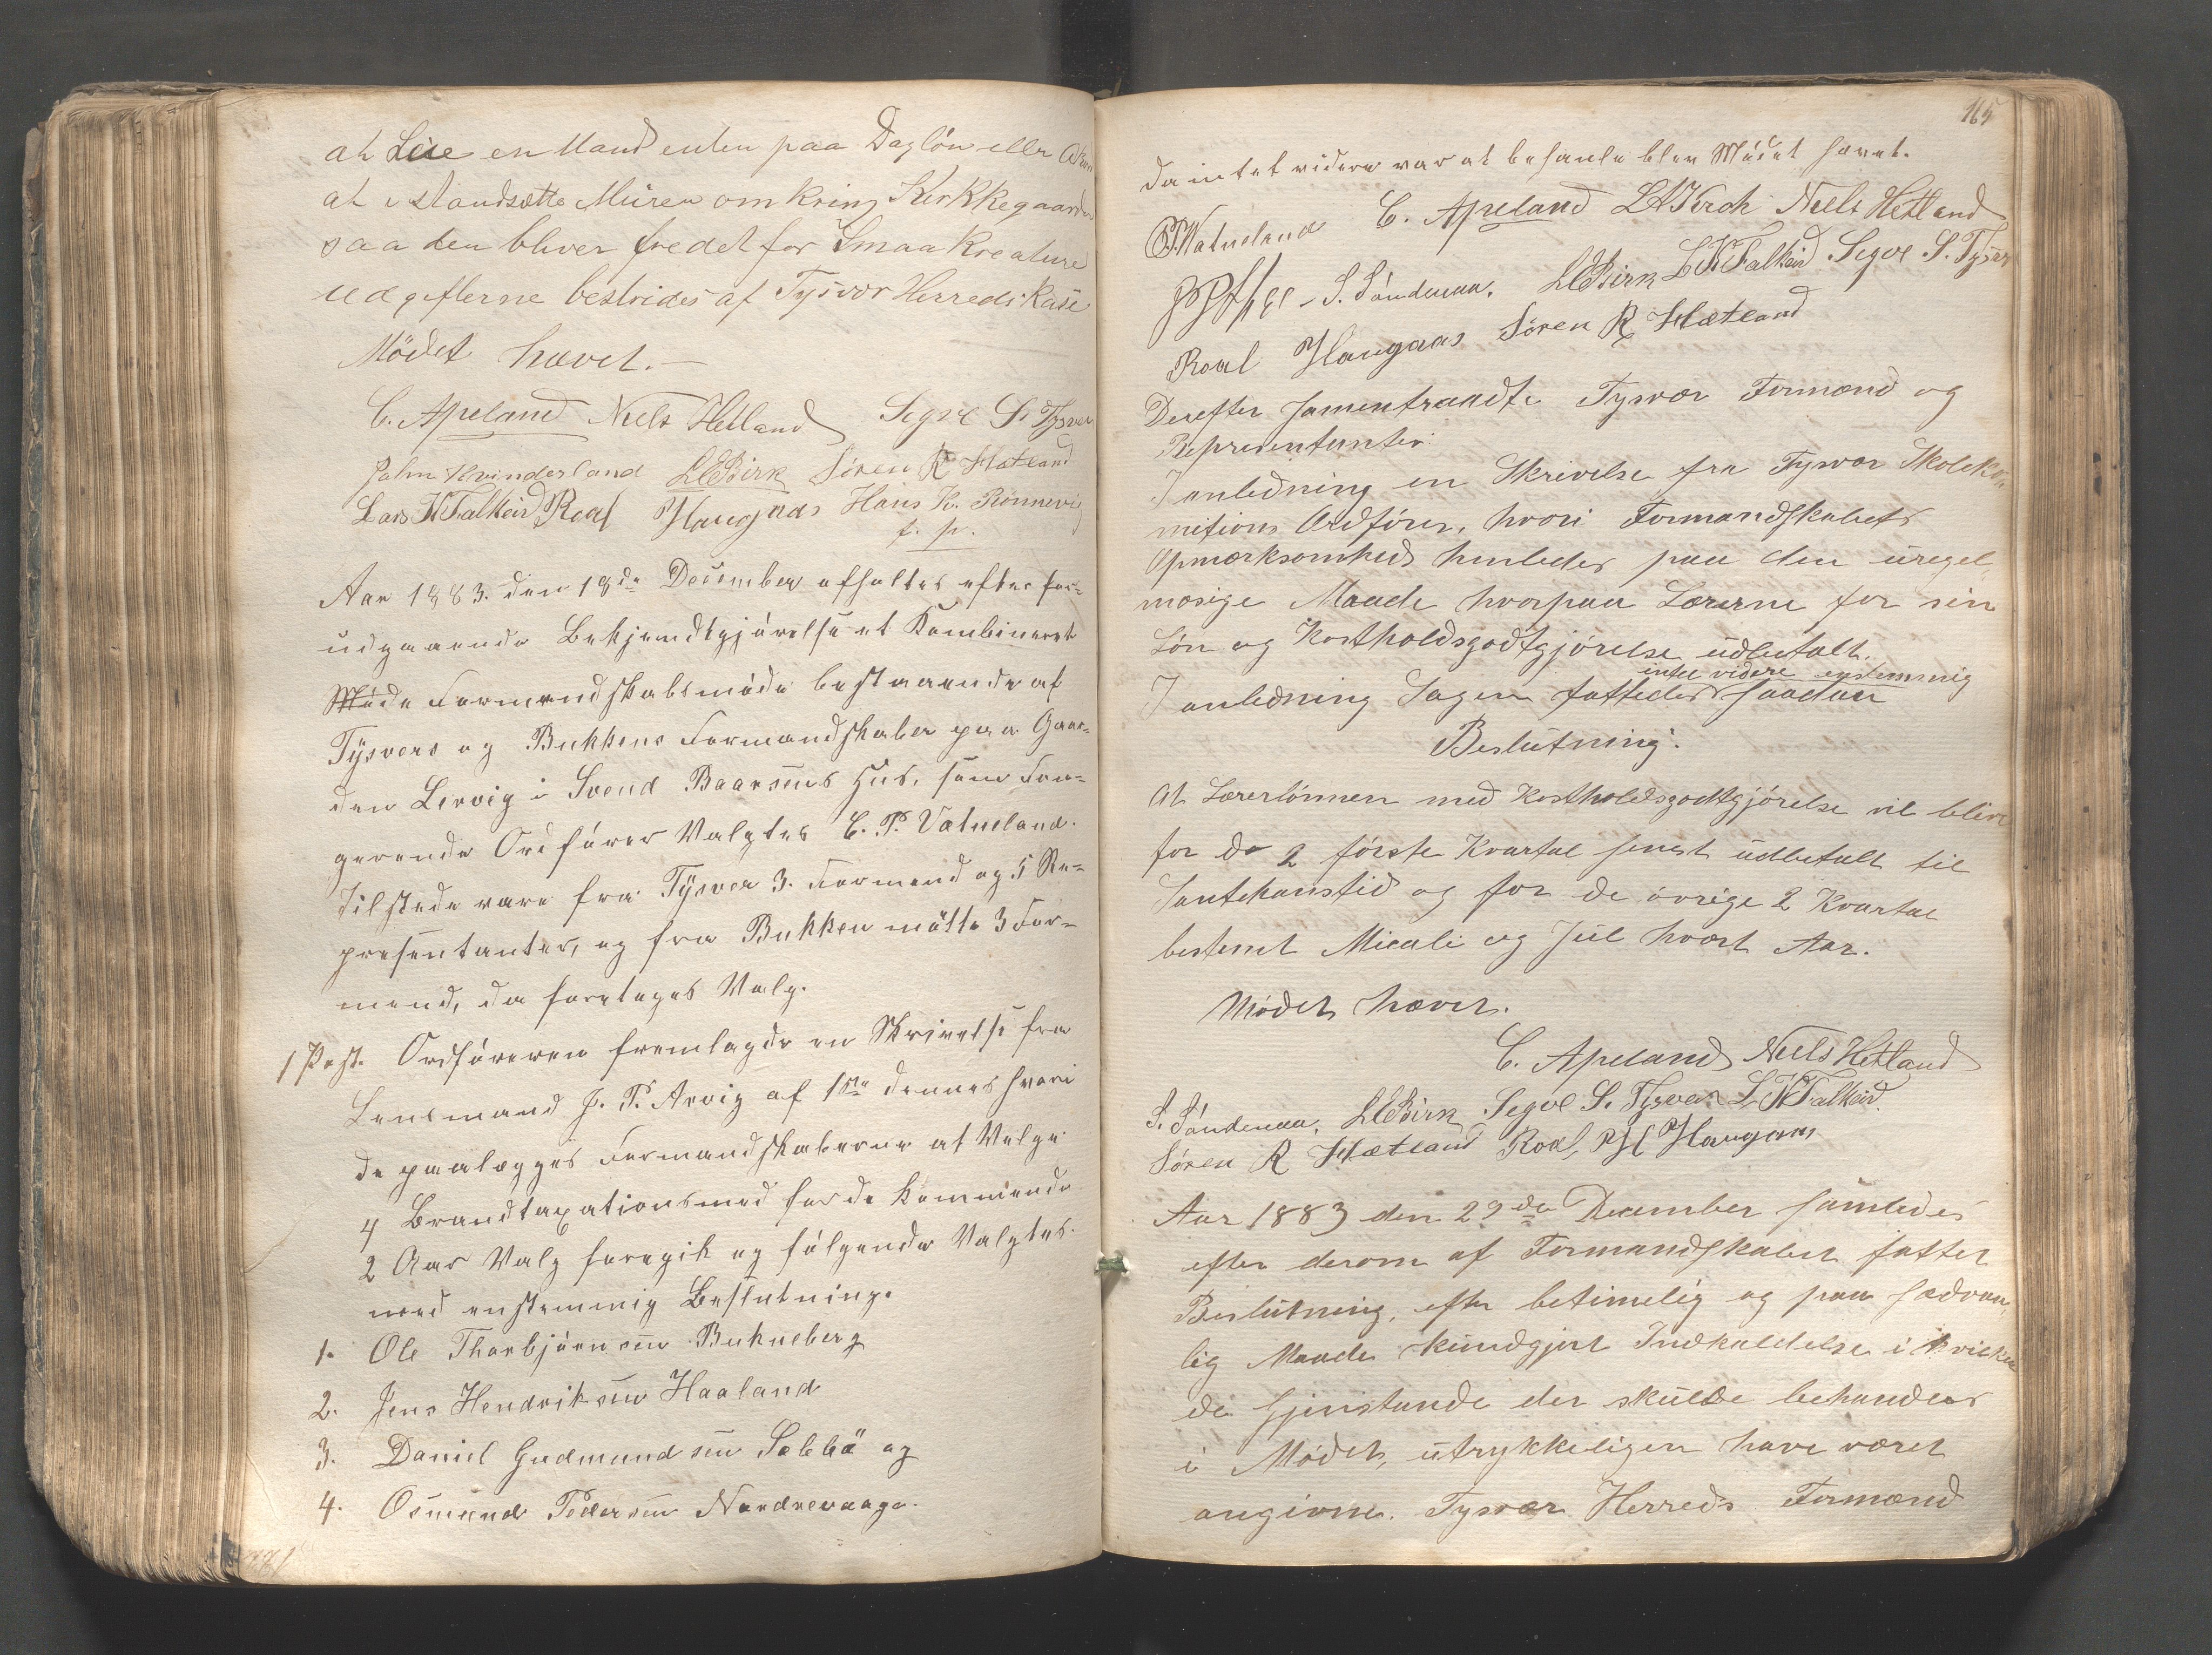 at Leie en Mand enten paa Dagløn eller Akor
at istandsætte Muren omkring Kirkkegaarden
saa den bliver fredet for Smaa Kreature
udgifterne bestrides af Tysvær Herreds Kase
Mødet hævet. —
C. Apeland Niels Hetland Segve S. Tysver
John Kvinderland LEBirk Sören R Hætland
Lars K Falkeid Roal Haugaas Hans K. Rönnevig
f. p.
Aar 1883. den 18de December afholtes efter for-
udgaaende Bekjendtgjörelse et Kombineret
Möde Formandskabsmöde bestaaende af
Tysvers og Bukkens Formandskaber paa Gaar-
den Lervig i Svend Baarsens Hus, som Fun-
gerende Ordförer Valgtes C. P. Vatneland.
Tilstede vare fra Tysver 3. Formend og 5 Re-
presentanter, og fra Bukken mötte 3 For-
mend, da foretages Valg.
1 Post. Ordföreren fremlagde en Skrivelse fra
Lensmand J. P. Arvig af 1ste dennes hvori
de paalægges Formandskaberne at Velge
4 Brandtaxationsmed for de kommende
2 Aar Valg foregik og fölgende Valgtes
med enstemmig Beslutning.
1. Ole Thorbjörnsen Bukneberg
2. Jens Hendriksen Haaland
3. Daniel Gudmundsen Sebbö og
4. Osmund Pedersen Nordrevaage.
165
Da intet videre var at behanle blev Mödet hævet.
Vatneland C. Apeland Niels Hetland
S. Söndenaa. LEBirk L K Falkeid Segve S. Tysver
Roal Haugaas Sören R Hætland
Derefter Samentraadte Tysvær Formænd og
Representanter:
I anledning en Skrivelse fra Tysvær Skoleko-
mitions Ordförer, hvori Formandskabets
Opmærksomhed henledes paa den uregel-
mæsige Maade hvorpaa Lærerne for sin
Løn og Kostholdsgodtgjörelse udbetalt.
intet videre enstemmig
I anledning Sagen fattedes saadan
Beslutning:
At Lærerlönnen med Kostholdsgodtgjörelse vil blive
for de 2 förste Kvartal senest udbetalt til
Santehanstid og for de övrige 2 Kvartal
bestemt Micali og Jul hvert Aar.
Mødet hævet.
C. Apeland Niels Hetland
S. Söndenaa. LEBirk Segve S. Tysver L K Falkeid.
Sören R Hætland Roal H Haugaas
Aar 1883 den 29de December samledes
efter derom af Formandskabet fattet
Beslutning, efter betimelig og paa sædvan-
lig Maade kundgjort Indkaldelse i hvilke
de Gjenstande der skulde behandles
i Mødet, utrykkeligen have været
angivne. Tysvær Herreds Formænd